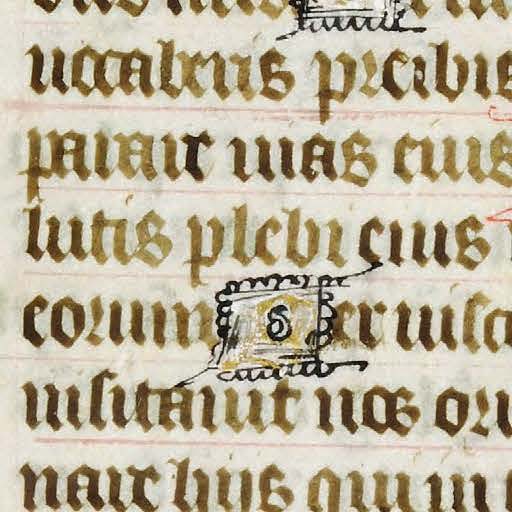 uocaberis preibis
parare uias eius
lutis plebi eius
eorum Per uisce
uisitauit nos ori
nare hiis qui in